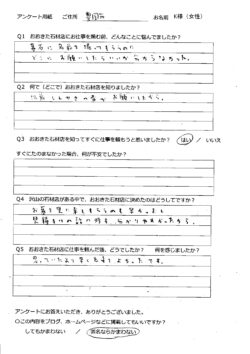 アンケート用紙　ご住所　　お名前　K様（女性）
Q1　おおきた石材店にお仕事を頼む前、どんなことに悩んでましたか？
墓石に名前を彫ってもらうのに
どこにお願いしたらいいか分からなかった。
Q2　何で（どこで）おおきた石材店を知りましたか？
お願いしたから。
Q3　おおきた石材店を知ってすぐに仕事を頼もうと思いましたか？　はい　／　いいえ
すぐにたのまなかった場合、何が不安でしたか？
Q4　沢山の石材店がある中で、おおきた石材店に決めたのはどうしてですか？
Q5　おおきた石材店に仕事を頼んだ後、どうでしたか？　何を感じましたか？
思っていたより早く出来てよかったです。
アンケートにお答えいただき、ありがとうございました。
○この内容をブログ、ホームページなどに掲載してもいいですか？
してもかまわない　／　匿名ならかまわない